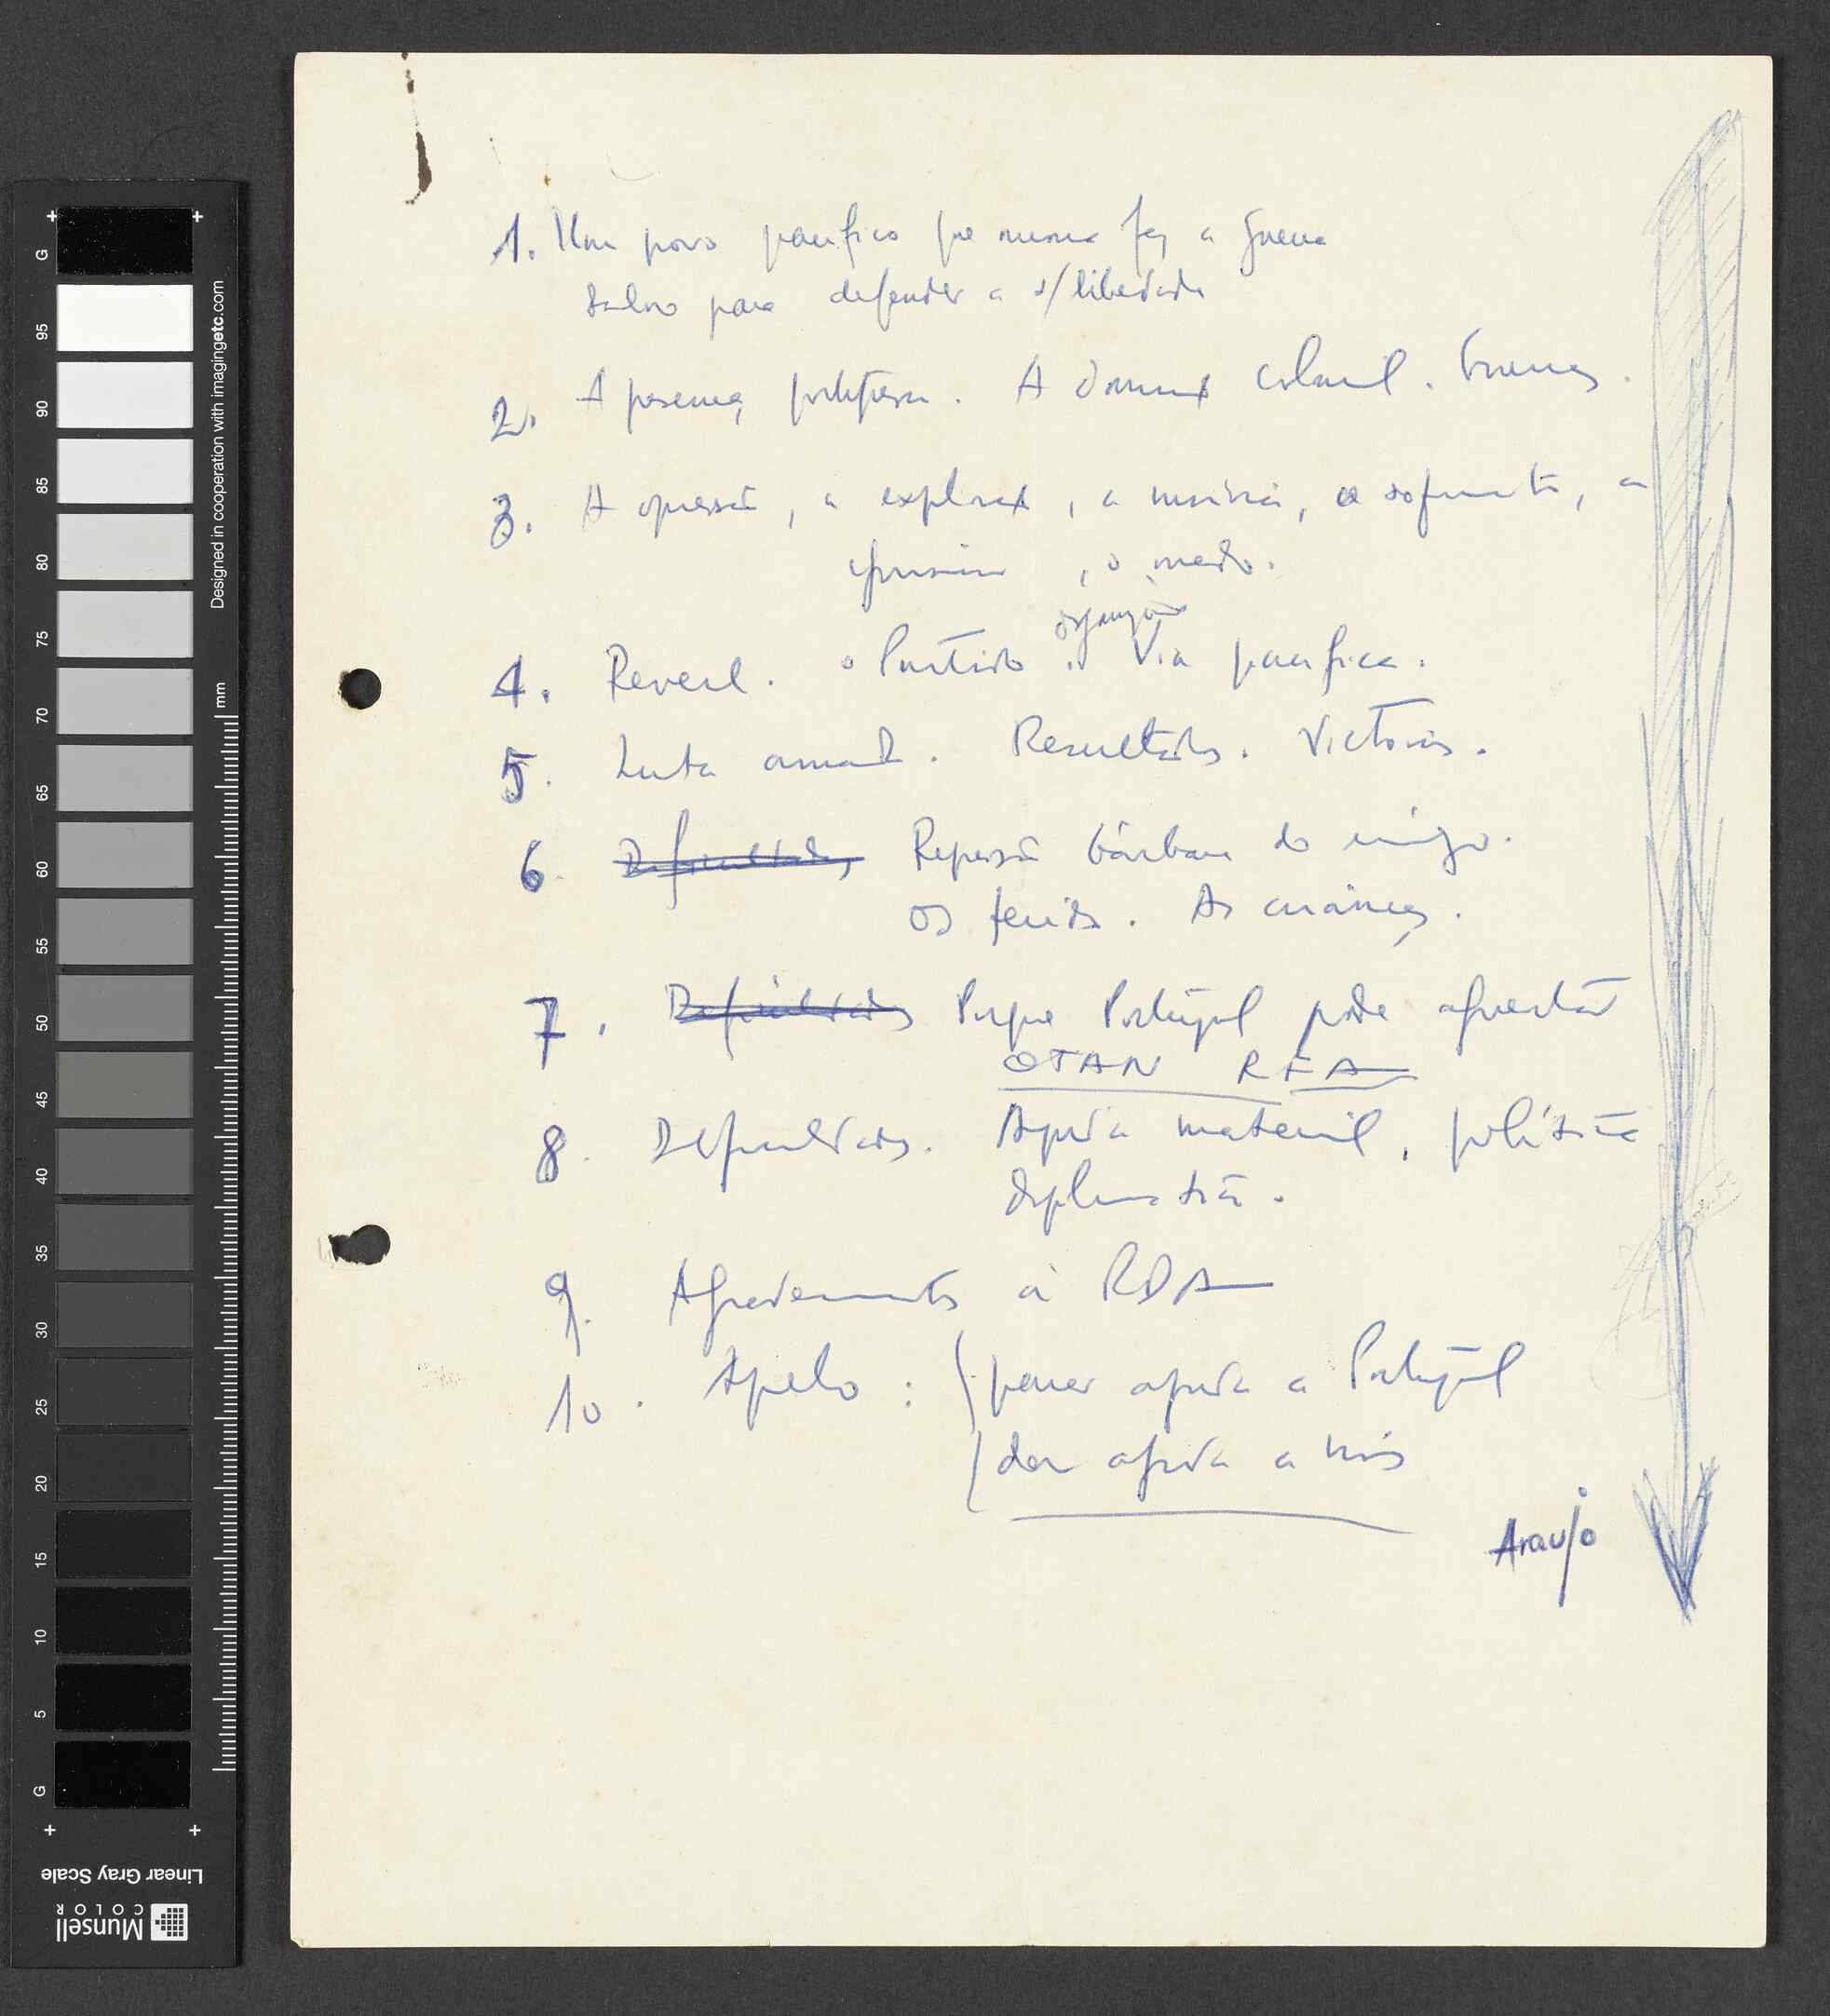 1. Um povo pacífico que nunca fez a guerra
salvo para defender a s/ liberdade
2. A presença portuguesa. A dominaç colonial. Guerras.
3. A opressão, a exploraç, a miséria, o sofrimento, a
ignorância, o medo.
organização
4. Reveil. o Partido. Via pacífica.
5. Luta armada. Resultados. Victórias.
6. Dificuldades Repressão bárbara do inimigo.
Os feridos. As crianças.
7. Dificuldades Porque Portugal pode aguentar
OTAN RFA
8. Dificuldades. Ajuda material, política
diplomática.
9. Agradecimentos à RDA
10. Apelo : ajuda a Portugal
dar ajuda a nós
Araujo
G
95
90
85
80
75
70
65
60
55
50
45
40
35
30
25
20
15
10
5
G
mm
Designed in cooperation with imagingetc.com
Linear Gray Scale
Munsell
COLOR